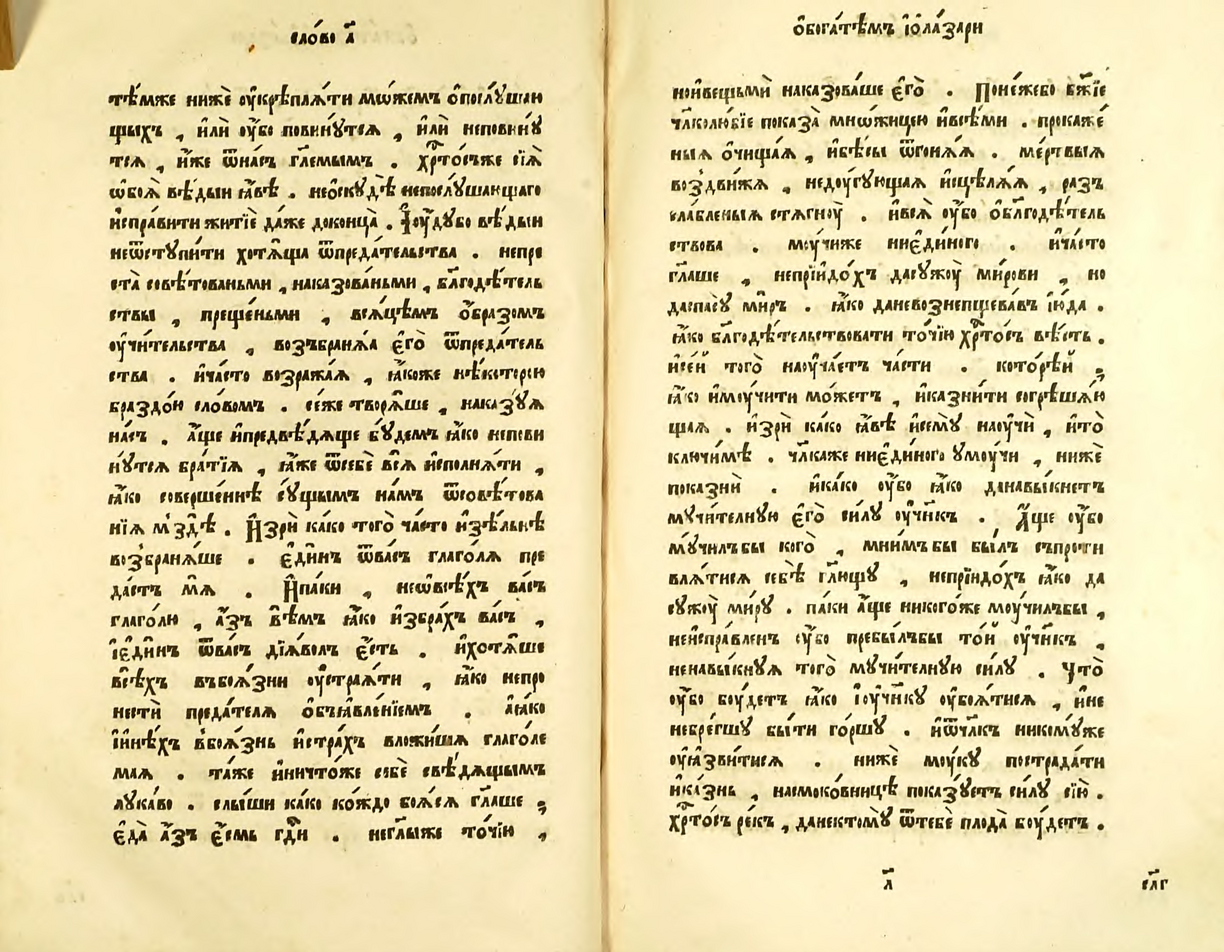 сло́во а҃
тѣ́мже нижѐ ᲂу҆крѣплѧ́ти мѡ́жемъ ѻ҆послу́шаю
щыхъ , и҆лѝ ᲂу҆́бо повинꙋ́тсѧ , и҆лѝ неповинꙋ́
тсѧ , и҆́же ѿна́съ гл҃емымъ . хрⷭ҇то́съже сїѧ̀
ѡ҆боѧ̀ вѣ́дыи ꙗ҆́вѣ . неѻ҆скꙋ́дѣ непослꙋ́шающаго
и҆спра́вити житїѐ да́же доконца̀ . І҆ю́дꙋбо вѣ́дыи
неѿстꙋпи́ти хотѧ́ща ѿпреда́тельства . непре
ста̀ совѣ́тованьми , наказова́ньми , бл҃годѣ́тель
ствы , преще́ньми , всѧ́цѣмъ ѻ҆́бразомъ
ᲂу҆чи́тельства , возъбранѧ́ѧ є҆го̀ ѿпреда́тель
ства . и҆ча́сто возража́ѧ , ꙗ҆́коже нѣ́которою
браздо́ю сло́вомъ . се́же творѧ́ше , наказꙋ́ѧ
на́съ . а҆́ще и҆предвѣ́дѧще бꙋ́демъ ꙗ҆́ко непови
нꙋ́тсѧ бра́тїѧ , ꙗ҆́же ѿсебѐ всѧ̀ и҆сполнѧ́ти ,
ꙗ҆́ко соверше́ннѣ сꙋ́щымъ на́мъ ѿсовѣ́това
нїѧ мъздѣ̀ . И҆зрѝ ка́ко того̀ ча́сто и҆зѣ́льнѣ
возбранѧ́ше . є҆ди́нъ ѿва́съ глаго́лѧ пре
да́стъ мѧ̀ . И҆па́ки , неѡ҆всѣ́хъ ва́съ
глаго́лю , а҆́зъ вѣ́мъ ꙗ҆́ко и҆збра́хъ ва́съ ,
і҆є҆ди́нъ ѿва́съ дїѧ́волъ є҆́сть . и҆хотѧ́ше
всѣ́хъ въбоѧ́зни ᲂу҆страѧ́ти , ꙗ҆́ко непро
нестѝ преда́телѧ ѻ҆бъꙗвле́нїемъ . а҆ꙗ҆́ко
і҆и҆нѣ́хъ вбоѧ́знь и҆стра́хъ вложи́шѧ глаго́ле
маѧ . та́же и҆ничто́же себѐ свѣ́дѧщымъ
лꙋка́во . слы́ши ка́ко ко́ждо боѧ́сѧ гл҃аше ,
є҆да̀ а҆́зъ є҆́смь гдⷭ҇и . негл҃ыже то́чїю ,
ѻ҆бога́тѣмъ і҆ѻ҆ла́зари
нои҆вещьмѝ наказова́ше є҆го̀ . Поне́жебо бж҃їе
чл҃колю́бїе показа̀ мно́жицею и҆всѣ́ми . прокаже́
ныѧ ѻ҆чища́ѧ , и҆бѣ́сы ѿгонѧ́ѧ . ме́ртвыѧ
воздви́жѧ , недᲂу́гующаѧ и҆сцѣлѧ́ѧ , разъ
сла́бленыѧ стѧгнᲂу̀ . и҆всѧ̀ ᲂу҆́бо ѻ҆бл҃годѣ́тель
ствова . мᲂу́чиже ниє҆ди́ного . и҆ча́сто
гл҃аше , непрїидо́хъ дасꙋжᲂу̀ ми́рови , но
даспасꙋ̀ ми́ръ . ꙗ҆́ко даневознепщева́въ і҆ю́да .
ꙗ҆́ко бл҃годѣ́тельствовати то́чїю хрⷭ҇то́съ вѣ́сть .
и҆се́й того̀ наᲂу҆ча́етъ ча́сти . кото́рѣй ,
ꙗ҆́ко и҆мᲂу́чити мо́жетъ , и҆казни́ти согрѣша́ю
щаѧ . и҆зрѝ ка́ко ꙗ҆́вѣ и҆семꙋ̀ наᲂу҆чѝ , и҆то̀
ключи́мѣ . чл҃ка́же ниє҆ди́ного ᲂумᲂу́чи , нижѐ
показнѝ . и҆ка́ко ᲂу҆́бо ꙗ҆́ко данавы́кнетъ
мꙋчи́телнꙋю є҆го̀ си́лꙋ ᲂу҆чн҃къ . А҆́ще ᲂу҆́бо
мꙋ́чилъбы кого̀ , мни́мъбы бы́лъ съпроти
влѧ́тисѧ себѣ̀ гл҃ющꙋ , непрїидо́хъ ꙗ҆́ко да
сꙋжᲂу̀ ми́рꙋ . па́ки а҆́ще никого́же мᲂу́чилъбы ,
неи҆спра́вленъ ᲂу҆́бо пребы́лъбы то́й ᲂу҆чн҃къ ,
ненавы́кнꙋѧ того̀ мꙋчи́телнꙋю си́лꙋ . Что̀
ᲂу҆́бо бᲂу́детъ ꙗ҆́ко і҆ᲂу҆чн҃кꙋ ᲂу҆боѧ́тисѧ , и҆не
небре́гшꙋ бы́ти го́ршꙋ . и҆ѿчл҃къ никомꙋ́же
ᲂу҆ꙗ҆зви́тисѧ . нижѐ мᲂу́кꙋ пострада́ти
и҆ка́знь , насмоко́вницѣ показꙋ́етъ си́лꙋ сїю̀ .
хрⷭ҇то́съ ре́къ , данектомꙋ̀ ѿтебѐ плода̀ бᲂу́детъ .
а҃
сл҃г